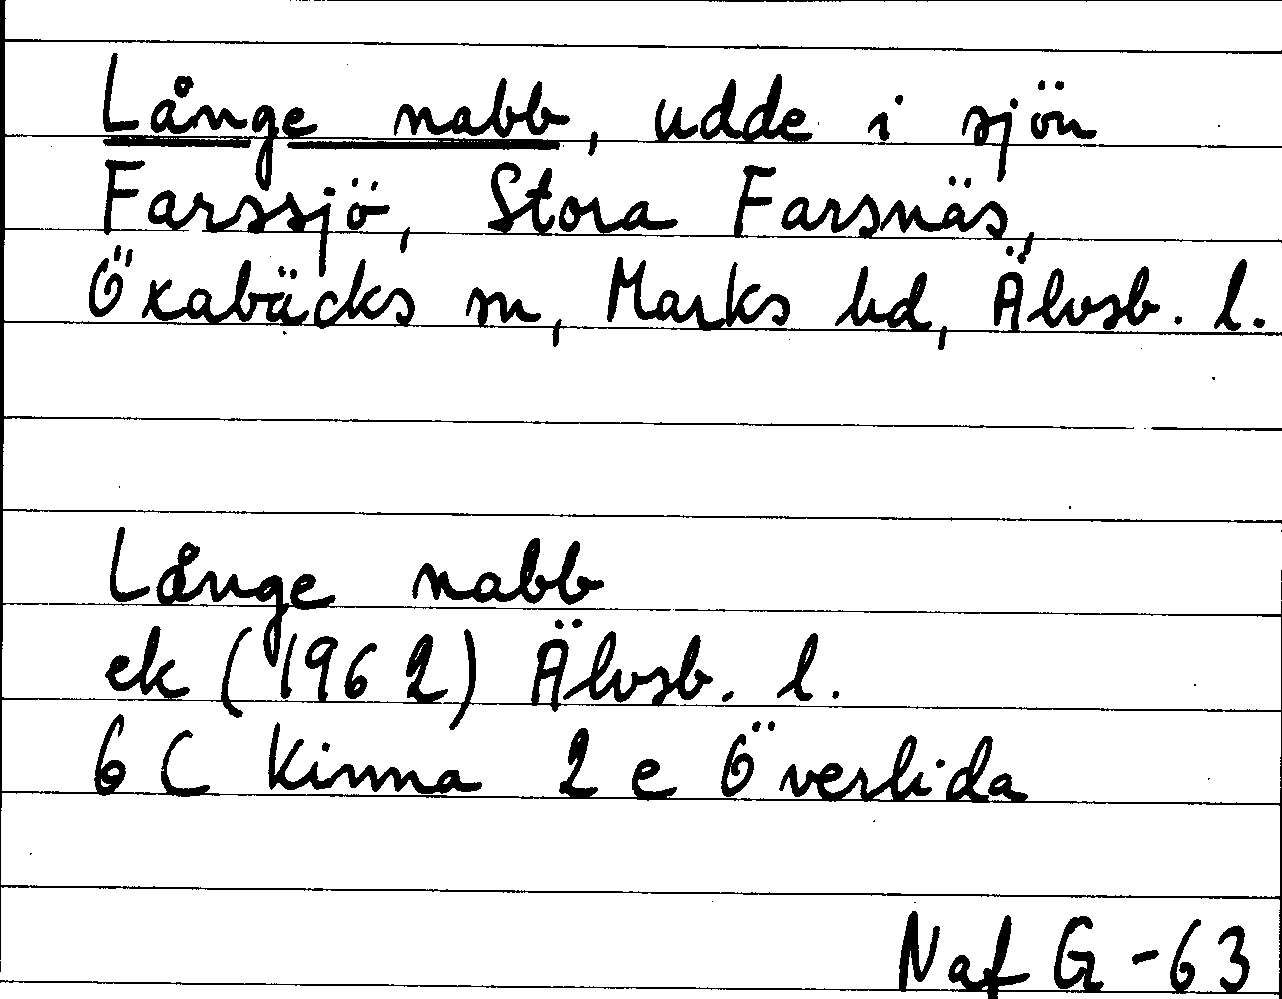 Långe nabb, udde i sjön
Farssjö, Stora Farsnäs,
Öxabäcks sn, Marks hd, Älvsb. l.
Långe nabb
ek (1962) Älvsb. l.
6 C Kinna 2 e Överlida
Naf G -63